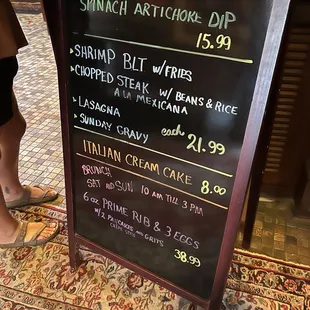 SPINACH ARTICHOKE DIP
15.99
SHRIMP BLT W/FRIES
CHOPPED STEAK W/ BEANS & RICE
A LA MEXICANA
LASAGNA
SUNDAY GRAVY each 21.99
ITALIAN CREAM CAKE
8.00
BRUNCH
SAT AND SUN 10 AM TILL 3 PM
6 oz PRIME RIB & 3 EGGS
W/ 2 PANCAKES AND GRITS
38.99